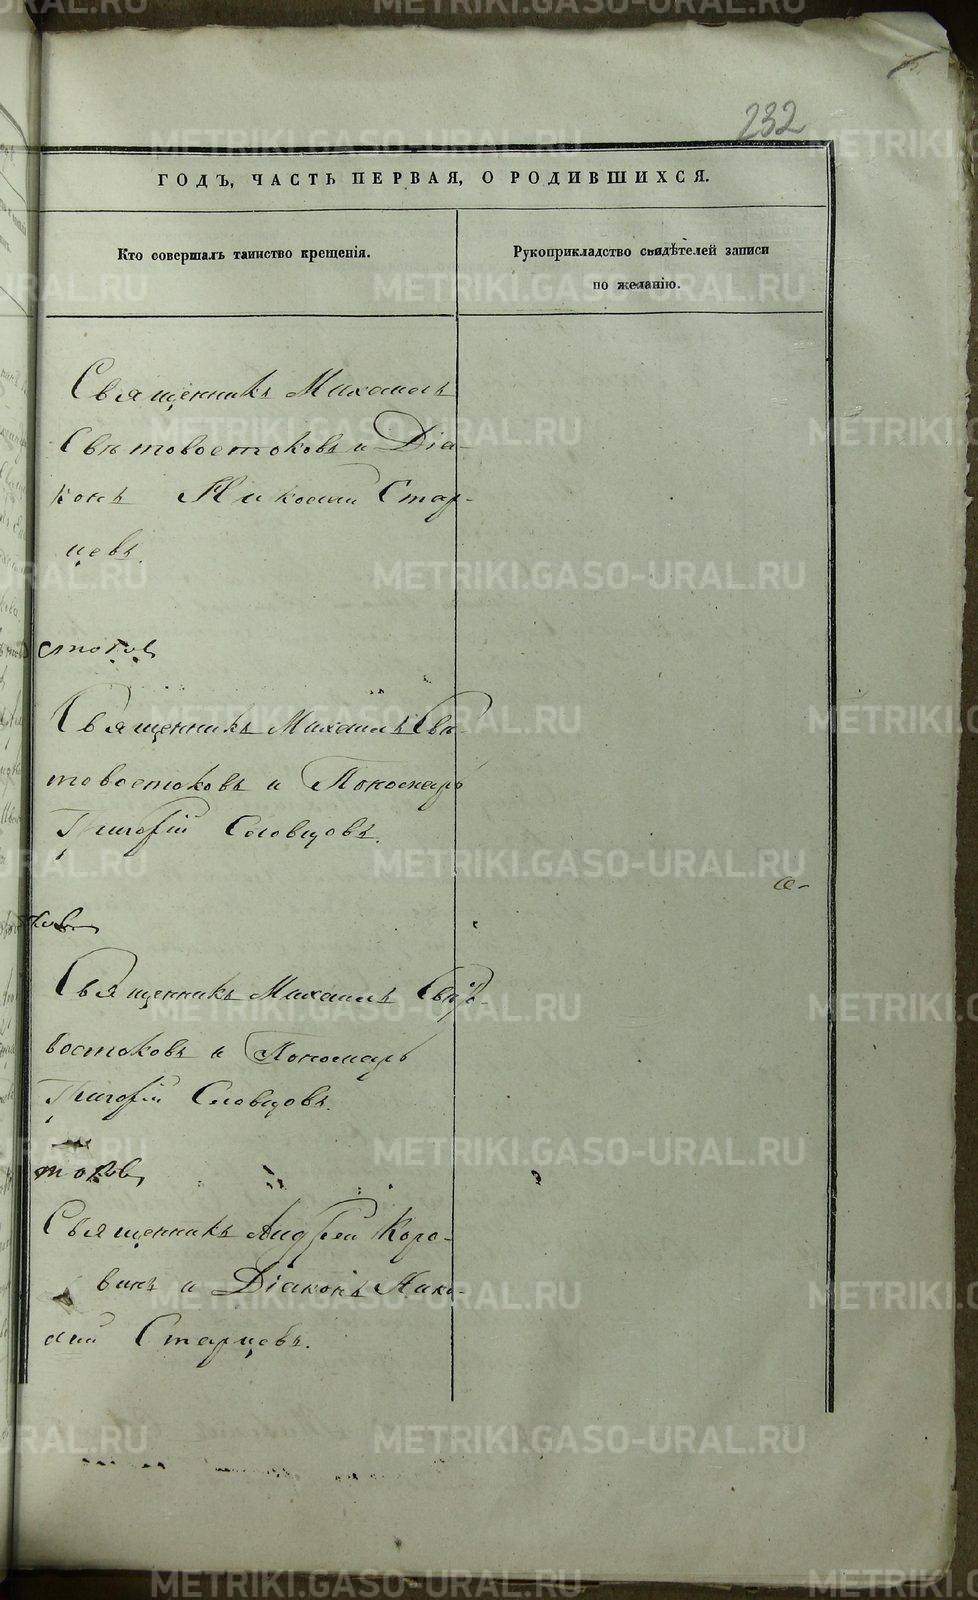 232
ГОДЪ, ЧАСТЬ ПЕРВАЯ, О РОДИВШИХСЯ.
Кто совершалъ таинство крещенія.
Рукоприкладство свидѣтелей записи
по желанію.
Священникъ Михаилъ
Свѣтовостоковъ и Діа-
конъ Никодим Стар-
цевъ.
стоков
Священникъ Михаилъ Свѣ-
товостоковъ и Пономарь
Григорій Словцовъ.
ков
Священникъ Михаилъ Свѣто-
востоковъ и Пономарь
Григорій Словцовъ.
токов
Священникъ Андрей Коро-
винъ и Діаконъ Нико-
дим Старцевъ.
METRIKI.GASO-URAL.RU